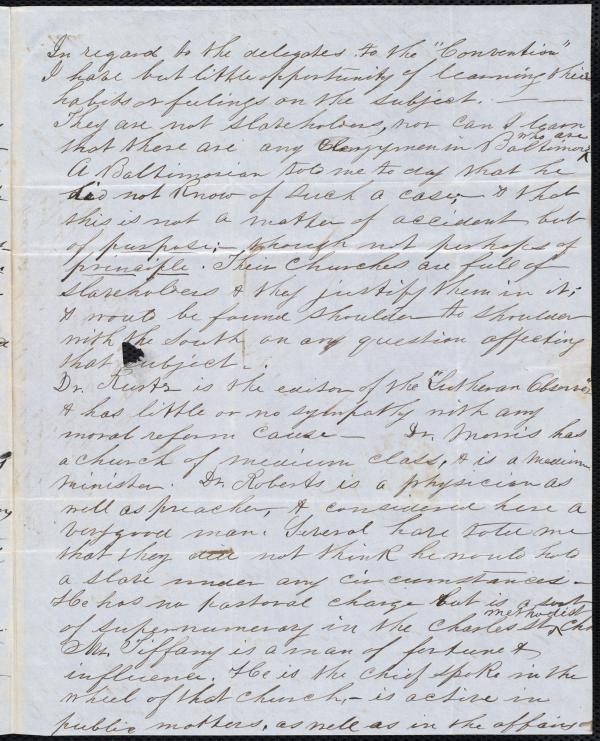 In regard to the delegates to the "Convention"
I have but little opportunity of learning their
habits or feelings on the subject. —
They are not slaveholders, nor can I learn
that there are any Clergymen in Baltimore who are
A Baltimorean told me to day that he
did not know of such a case, & that
this is not a matter of accident but
of purpose;— though not perhaps of
principle. Their churches are full of
slaveholders & they justify them in it;
& would be found shoulder to shoulder
with the South on any question affecting
that subject.
Dr. Kurtz is the editor of the "Lutheran Observer"
& has little or no sympathy with any
moral reform cause — Dr. Morris has
a church of medium class, & is a medium
minister. Dr. Roberts is a physician as
well as preacher, & considered here a
very good man. Several have told me
that they did not think he would hold
a slave under any circumstances —
He has no pastoral charge but is a sort
of supernumerary in the Charles St. methodist Ch
Mr. Tiffany is a man of fortune &
influence. He is the chief spoke in the
wheel of that church,— is active in
public matters, as well as in the affairs of